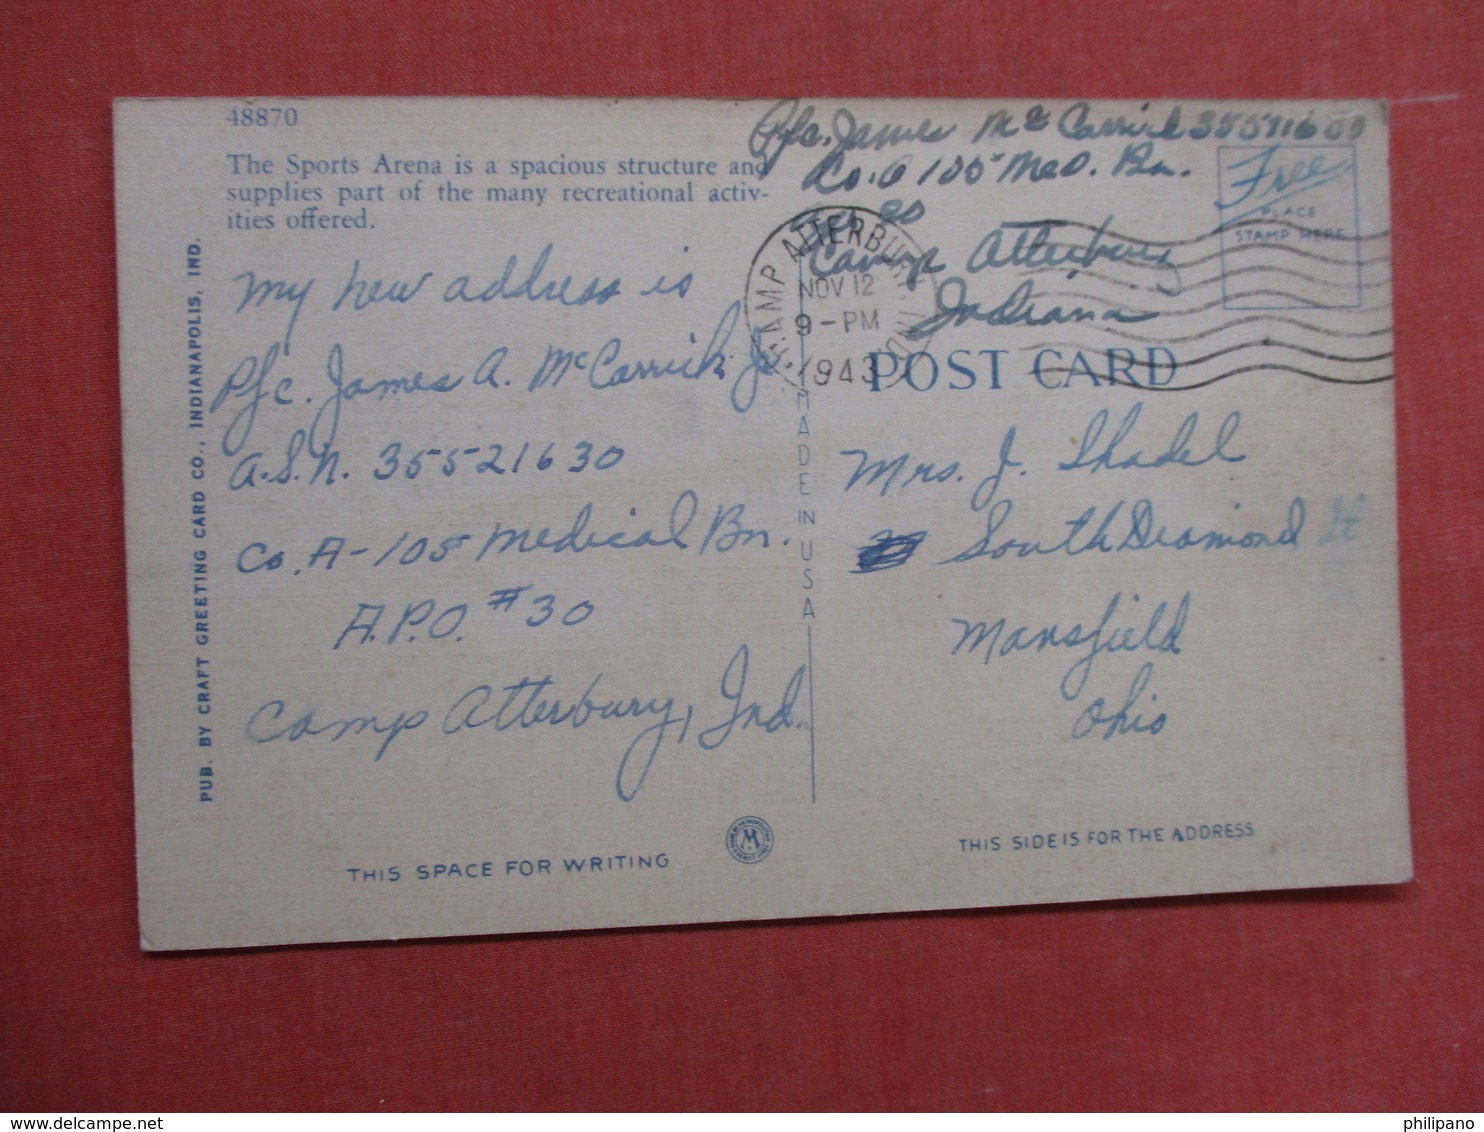 48870
The Sports Arena is a spacious structure and
supplies part of the many recreational activ-
ities offered.
My new address is
Pfc. James A. McCarrick Jr.
A.S.N. 35521630
Co. A-105 Medical Bn.
A.P.O. #30
Camp Atterbury, Ind.
THIS SPACE FOR WRITING
PUB. BY CRAFT GREETING CARD CO., INDIANAPOLIS, IND.
MADE IN USA
Pfc. James McCarrick
Co. A 105 Med. Bn.
Camp Atterbury
Indiana
CAMP ATTERBURY, IND.
NOV 12
9-PM
1943
Free
PLACE
STAMP HERE
POST CARD
Mrs. J. Shadel
South Diamond St
Mansfield
Ohio
THIS SIDE IS FOR THE ADDRESS
philipano
delcampe.net